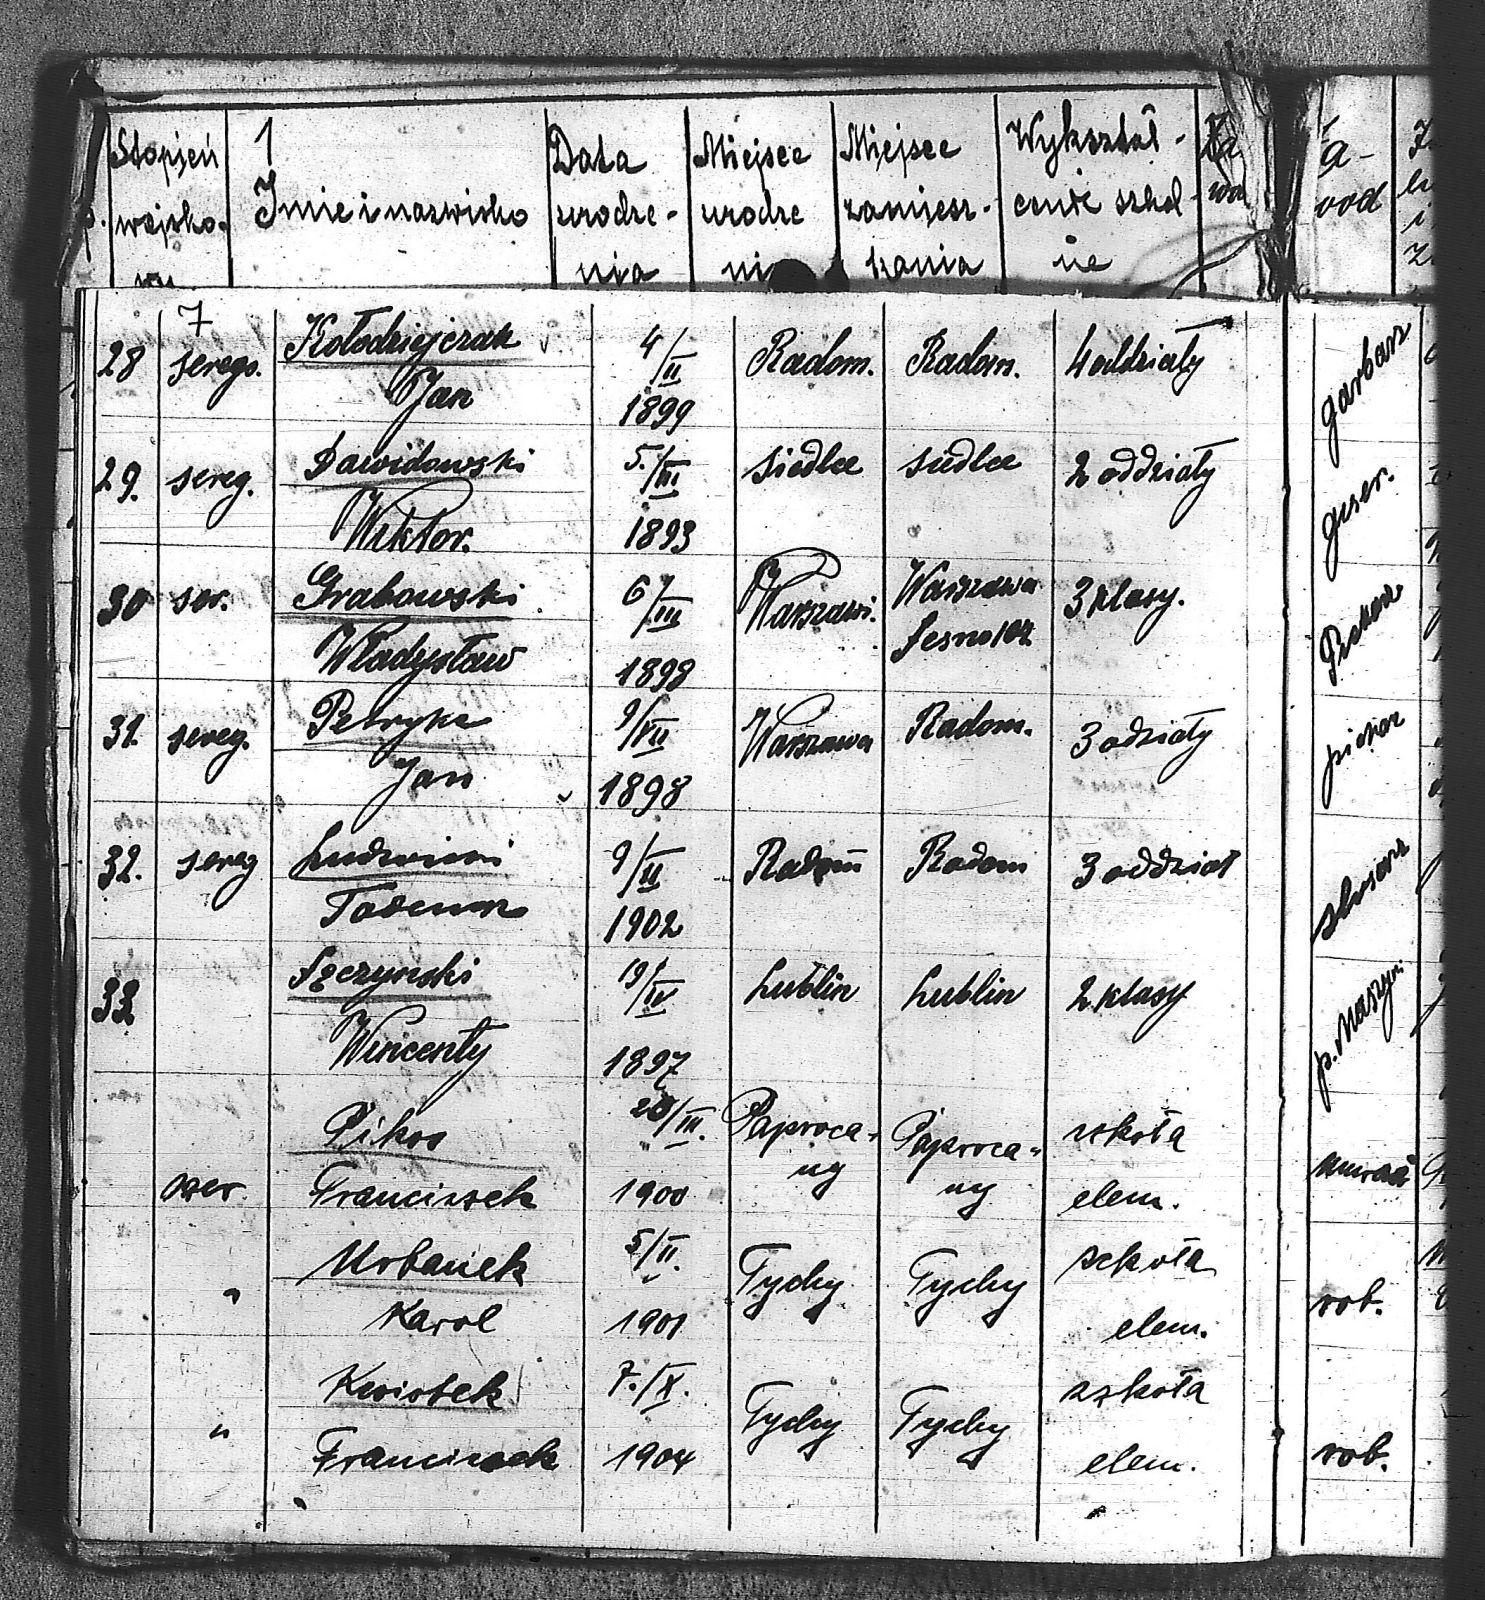 Stopień wojsko- wy
1
Imię i nazwisko
Data urodze- nia
Miejsce urodze ni
Miejsce zamiesz- kania
Wykształ- cenie szkol- ne
7
28 szereg. Kołodziejczak Jan 4/II 1899 Radom. Radom. 4 oddziały garbarz
29. szereg. Dawidowski Wiktor. 5./III 1893 Siedlce Siedlce 2 oddziały giser.
30 szer. Grabowski Władysław 6/III 1898 Warszawa Leszno 3 klasy.
31. szereg. Jan 9/VII 1898 Warszawa Radom. 3 odziały
32. szereg 9/II 1902 Radom Radom 3 oddział ślusarz
33 Wincenty 19/IV 1897 Lublin Lublin 2 klasy
szer. Pikos Franciszek /III. 1900 Paproca- ny Paproca- ny szkoła elem.
" Urbanek Karol 5/II. 1901 Tychy Tychy szkoła elem. rob.
" Franciszek 7./X. 1904 Tychy Tychy szkoła elem. rob.